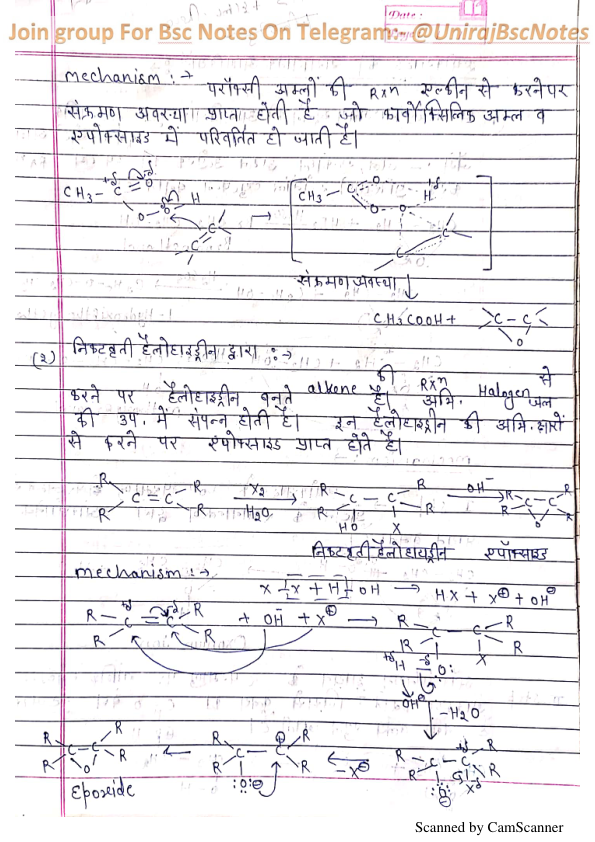 Date:
Join group For Bsc Notes On Telegram:- @UnirajBscNotes
mechanism :→
परॉक्सी अम्लों की Rxn एल्कीन से करने पर
संक्रमण अवस्था प्राप्त होती है जो कार्बोक्सिलिक अम्ल व
एपोक्साइड में परिवर्तित हो जाती है।
CH₃ – C = O
O – O H
C = C
→
CH₃ – C O
O O H
C C
संक्रमण अवस्था
CH₃COOH + C – C
O
(2) निकटवर्ती हैलोहाइड्रीन द्वारा :→
alkene की Rxn Halogen से
करने पर हैलोहाइड्रीन बनते है। अभि. जल
की उप. में संपन्न होती है। इन हैलोहाइड्रीन की अभि. क्षारों
से करने पर एपोक्साइड प्राप्त होते है।
R R C = C R R X₂ H₂O → R R C – C R R HO X OH⁻ → R R C – C R R O
निकटवर्ती हैलोहायड्रीन एपॉक्साइड
mechanism :→
X – X + H – OH → HX + X⊕ + OH⊖
R R C = C R R + OH⁻ + X⊕ → R R C – C R R X
+δ H –δ O:
OH⊖
–H₂O
R R C – C R R O ← R R C – C⊕ R R :O:⊖ ← –X⊖ R R C – C R R O⊖ X
Epoxide
Scanned by CamScanner